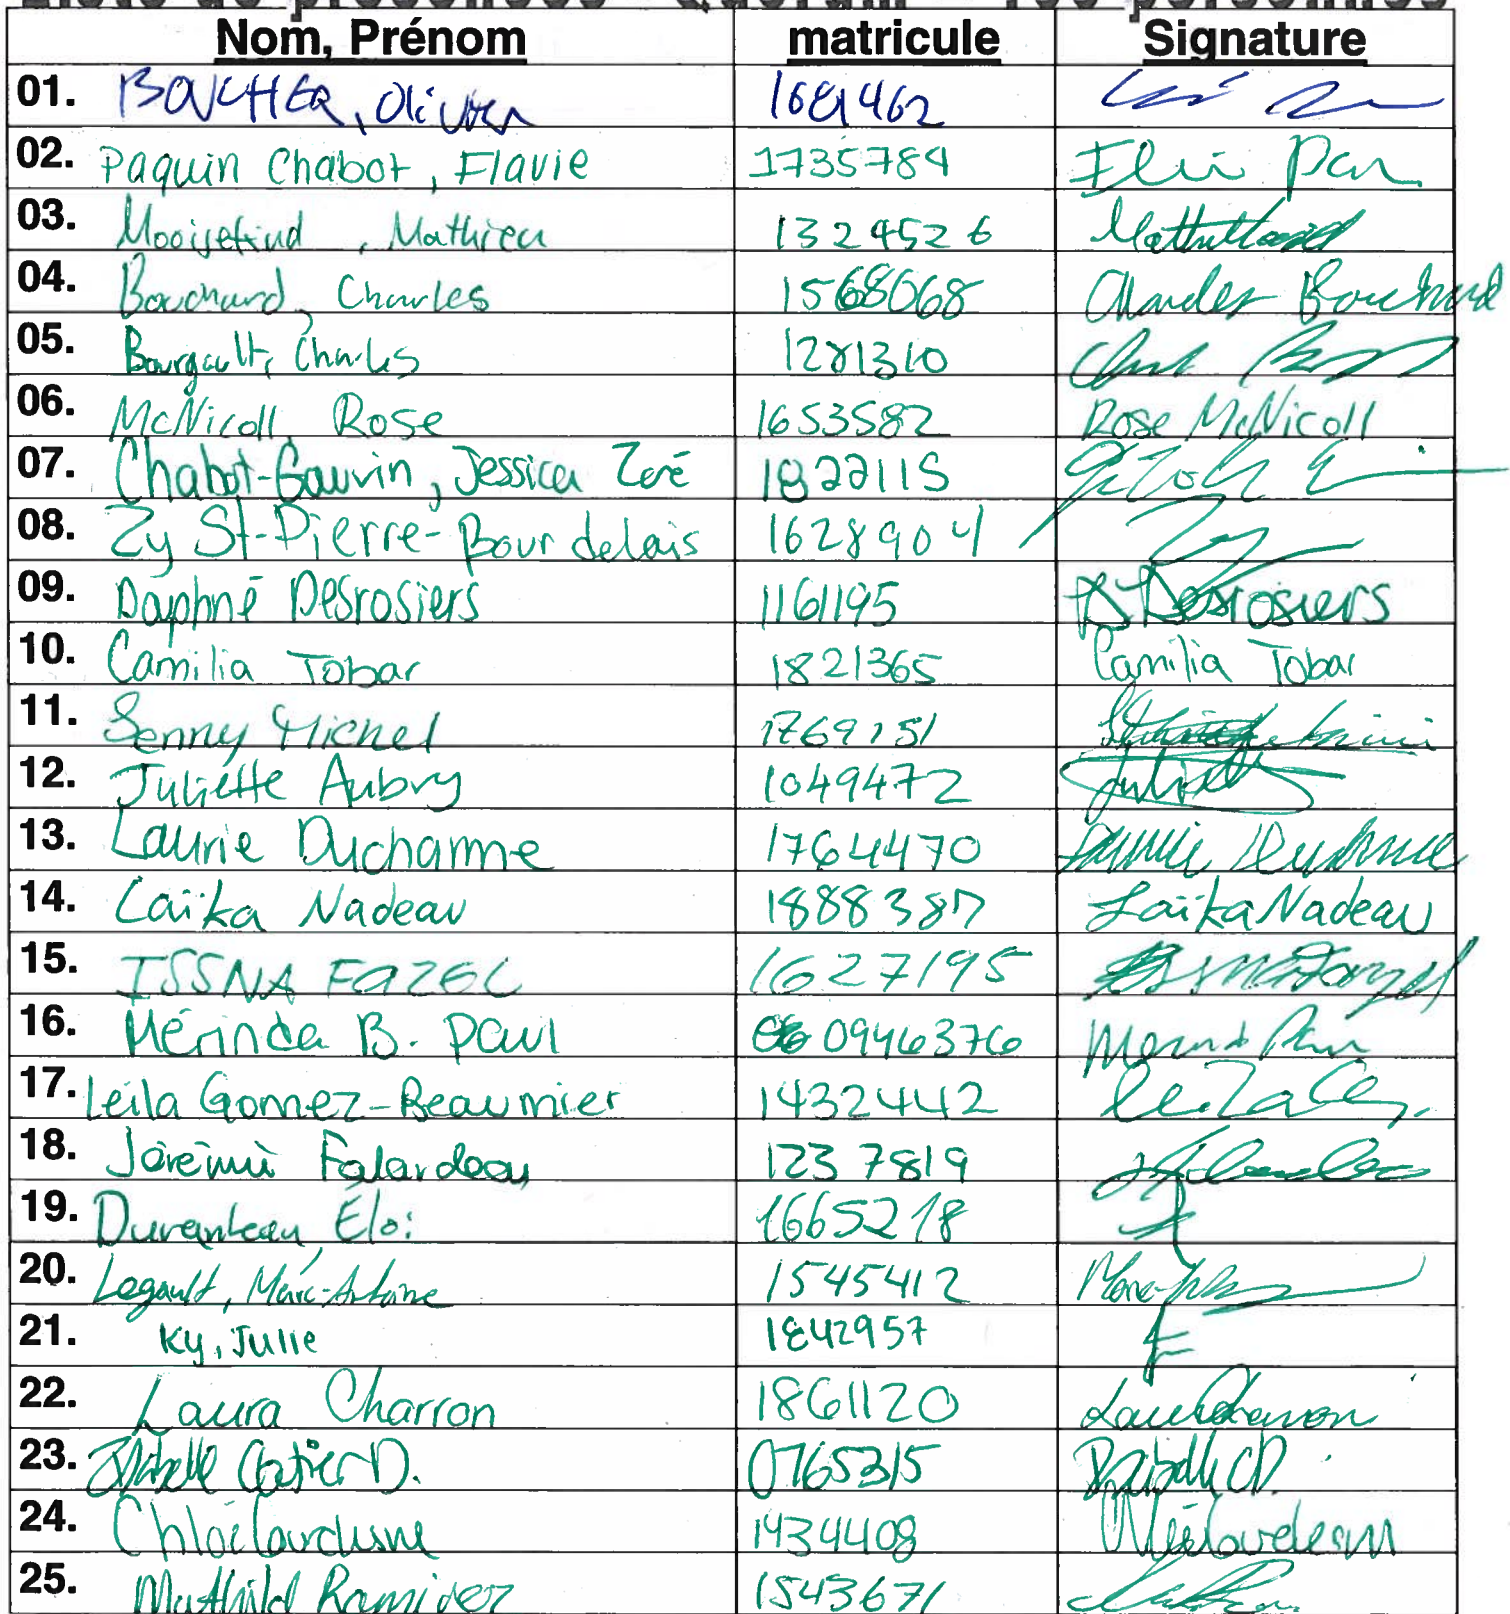 Liste de présences - Quorum = 100 personnes
Nom, Prénom matricule Signature
01. BOUCHER, Olivier 1681462
02. Paquin Chabot, Flavie 1735784
03. , Mathieu 1324526
04. Bouchard, Charles 1568068 Charles Bouchard
05. Bourgault, Charles 1281310
06. McNicoll Rose 1653582 Rose McNicoll
07. Chabot-Gauvin, Jessica Zoré 1822115
08. Zy St-Pierre-Bourdelais 1628904
09. Daphné Desrosiers 1161195 Desrosiers
10. Camilia Tobar 1821365 Camilia Tobar
11. Senny Michel 1769151
12. Juliette Aubry 1049472 Juliette
13. Laurie Ducharme 1764470 Laurie Ducharme
14. Laïka Nadeau 1888387 Laïka Nadeau
15. ISSNA FAZEL 1627195
16. Mérinda B. Paul 09463376
17. Leila Gomez-Beaumier 14322442
18. Jérémie Falardeau 1237819
19. Duranleau, Éloi 1665218
20. Legault, Marc-Antoine 1545412
21. Ky, Julie 1842957
22. Laura Charron 1861120 Laura Charron
23. Isabelle Cartier D. 0765315 Isabelle CD.
24. Chloé 1434408
25. Mathild Ramirez 1543671